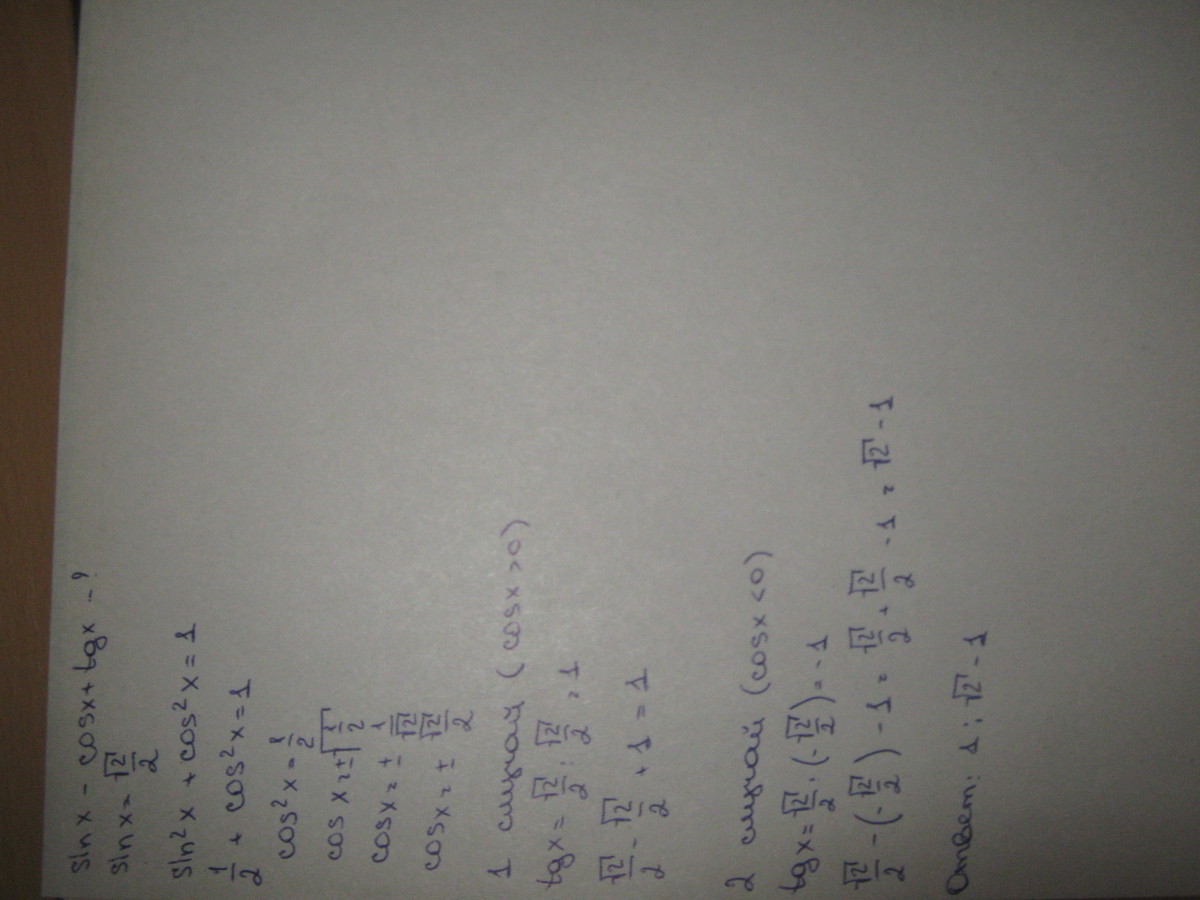 sin x - cosx + tgx - ?
sin x = √2/2
sin²x + cos²x = 1
1/2 + cos²x = 1
cos²x = 1/2
cosx = ±√(1/2)
cosx = ± 1/√2
cosx = ± √2/2
1 случай (cosx > 0)
tgx = √2/2 : √2/2 = 1
√2/2 - √2/2 + 1 = 1
2 случай (cosx < 0)
tgx = √2/2 : (-√2/2) = -1
√2/2 - (-√2/2) - 1 = √2/2 + √2/2 - 1 = √2 - 1
Ответ: 1 ; √2 - 1